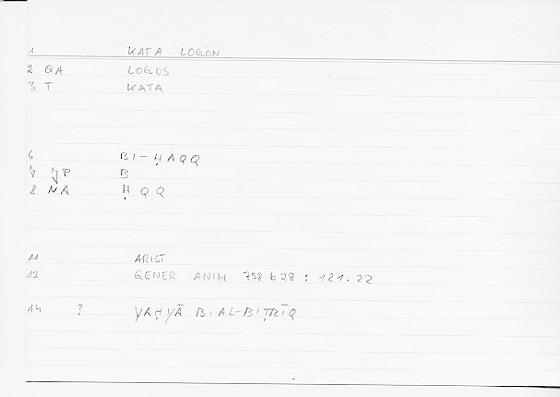 1 KATA LOGON
2 QA LOGOS
3 T KATA
6 BI-ḤAQQ
7 JP B
8 NA Ḥ Q Q
11 ARIST
12 GENER ANIM 758 b 28 : 121.22
14 ? YAḤYĀ B. AL-BIṬRĪQ